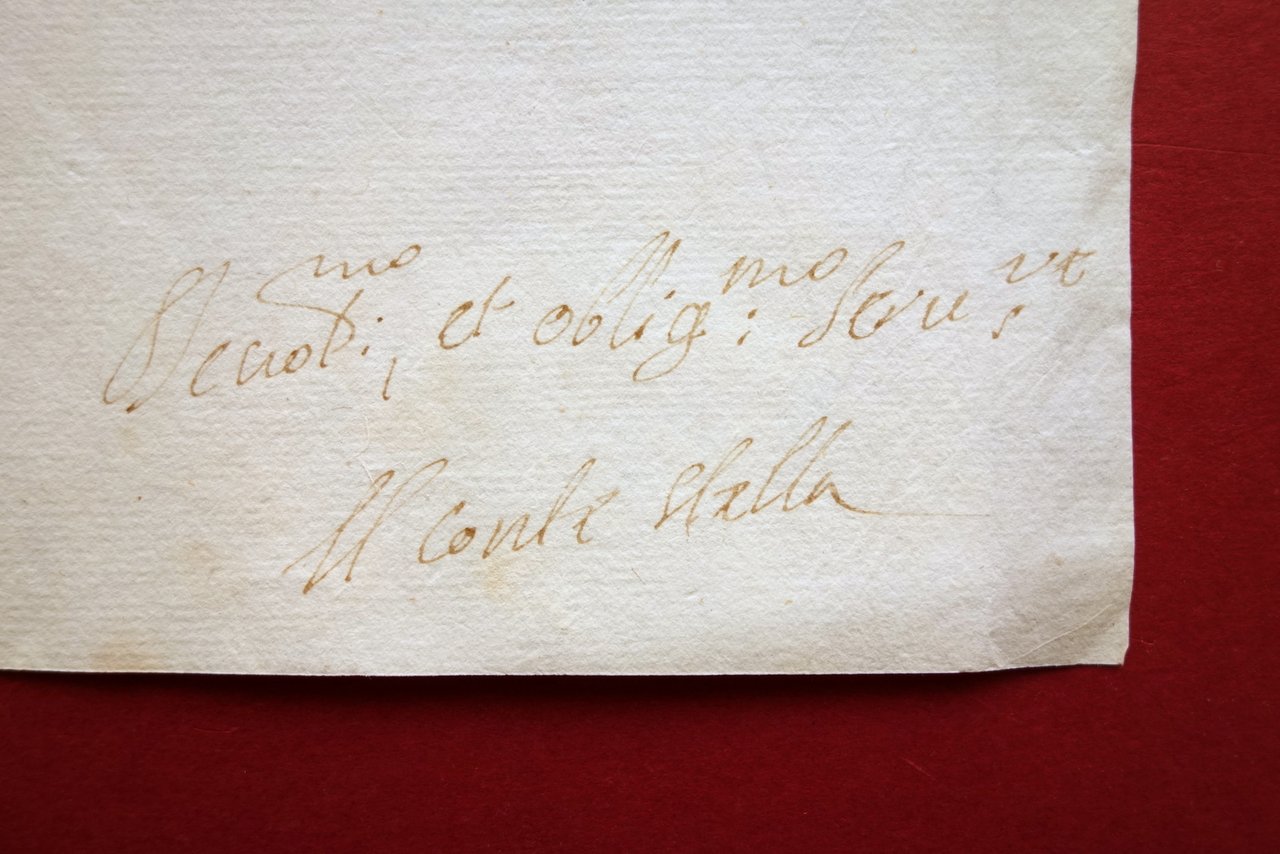 Deuot:mo, et oblig:mo Seru:re
Il conte Stella